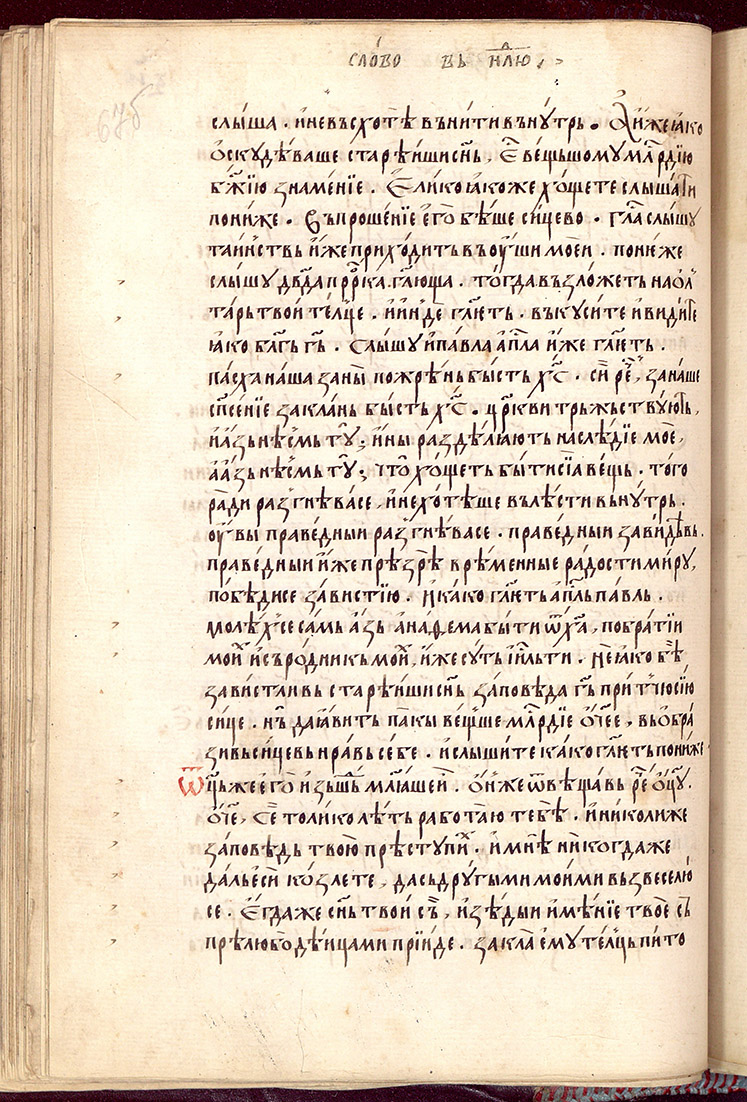 сло́во въ нⷣлю
675
слы́ша . и҆ невъсхо́тѣ въни́ти въну́трь . А҆ и҆́же ꙗ҆́ко
ѡ҆скудѣ́ваше старѣ́ишіи сн҃ь , Е҆ вещьшому млⷭ҇рдїю
бж҃їю зна́менїе . Е҆ли́ко ꙗ҆́коже хо́щете слы́шати
пони́же . Въпроше́нїе е҆го̀ бѣ́ше си́цево . гл҃а слы́шу
таи́нствь и҆́же прихо́дить въ ѹ҆́ши мое́и . поне́же
слы́шу дв҃да прⷪ҇рка гл҃юща . тогда̀ възло́жеть на ѻ҆л
та́рь твои́ те́лце . и҆ и҆нде гл҃еть . въкуси́те и҆ ви́дите
ꙗ҆́ко бл҃гь гь҃ . Слы́шу и҆ па́вла а҆пⷭ҇ла и҆́же гл҃еть .
па́сха на́ша за ны̀ пожрѣ́нь бы́сть хⷭ҇ . си́ рⷱ҇е , за на́ше
сп҃се́нїе закла́нь бы́сть хⷭ҇ . цр҃кви трьжьствую́ть ,
и҆ а҆́зь нѣ́смь ту̀ ; и҆ны̀ раздѣлꙗ́ють наслѣ́дїе моѐ ,
а҆ а҆́зь нѣ́смь ту̀ ; что̀ хо́щеть бы́ти сїа̀ ве́щь . того̀
ра́ди разгнѣ́васе , и҆ не хотѣ́ше вълѣ́сти вьну́трь .
ѹ҆вы̀ пра́ведныи разгнѣ́васе . пра́ведныи зави́дѣвь .
пра́ведныи и҆́же прѣзрѣ̀ врѣ́менные ра́дости ми́ру ,
побѣ́дисе за́вистїю . И҆ ка́ко гл҃еть а҆пⷭ҇ль па́вль .
моле́хсе са́мь а҆́зь а҆на́ѳема бы́ти ѿ х҃а , по бра́тїи
мои́ и҆ съро́дникь мои́ , и҆́же су́ть і҆и҃льти . Не ꙗ҆́ко бѣ̀
зави́стливь старѣ́ишіи сн҃ь за́повѣда гь҃ при́тчю сїю̀
си́це . нь да ꙗ҆ви́ть па́кы ве́щше млⷭ҇рдїе ѻ҆́чⷭ҇ее , въѡ҆бра
зи́вь си́цевь нра́вь себѐ . и҆ слы́шите ка́ко гл҃еть пони́же
Ѿц҃ь же е҆го̀ и҆зьшⷣь млꙗ́ше и҆̀ . Ѻ҆́нже ѿвѣща́вь рⷱ҇е ѻ҆ц҃у .
Ѻ҆́ч҃е , Се толи́ко лѣ́ть рабо́таю тебѣ̀ . и҆ ни́колиже
за́повѣдь твою̀ прѣступи́х . и҆ мнѣ̀ ни́когдаже
да́ль е҆сѝ ко́злете , да сь дру́гыми мои́ми възвеселю́
се . Е҆гда́же сн҃ь твои́ съ , и҆зѣ́дыи и҆мѣ́нїе твоѐ съ
прѣлюбодѣ́ицами прїи́де . закла̀ е҆му те́лць пито